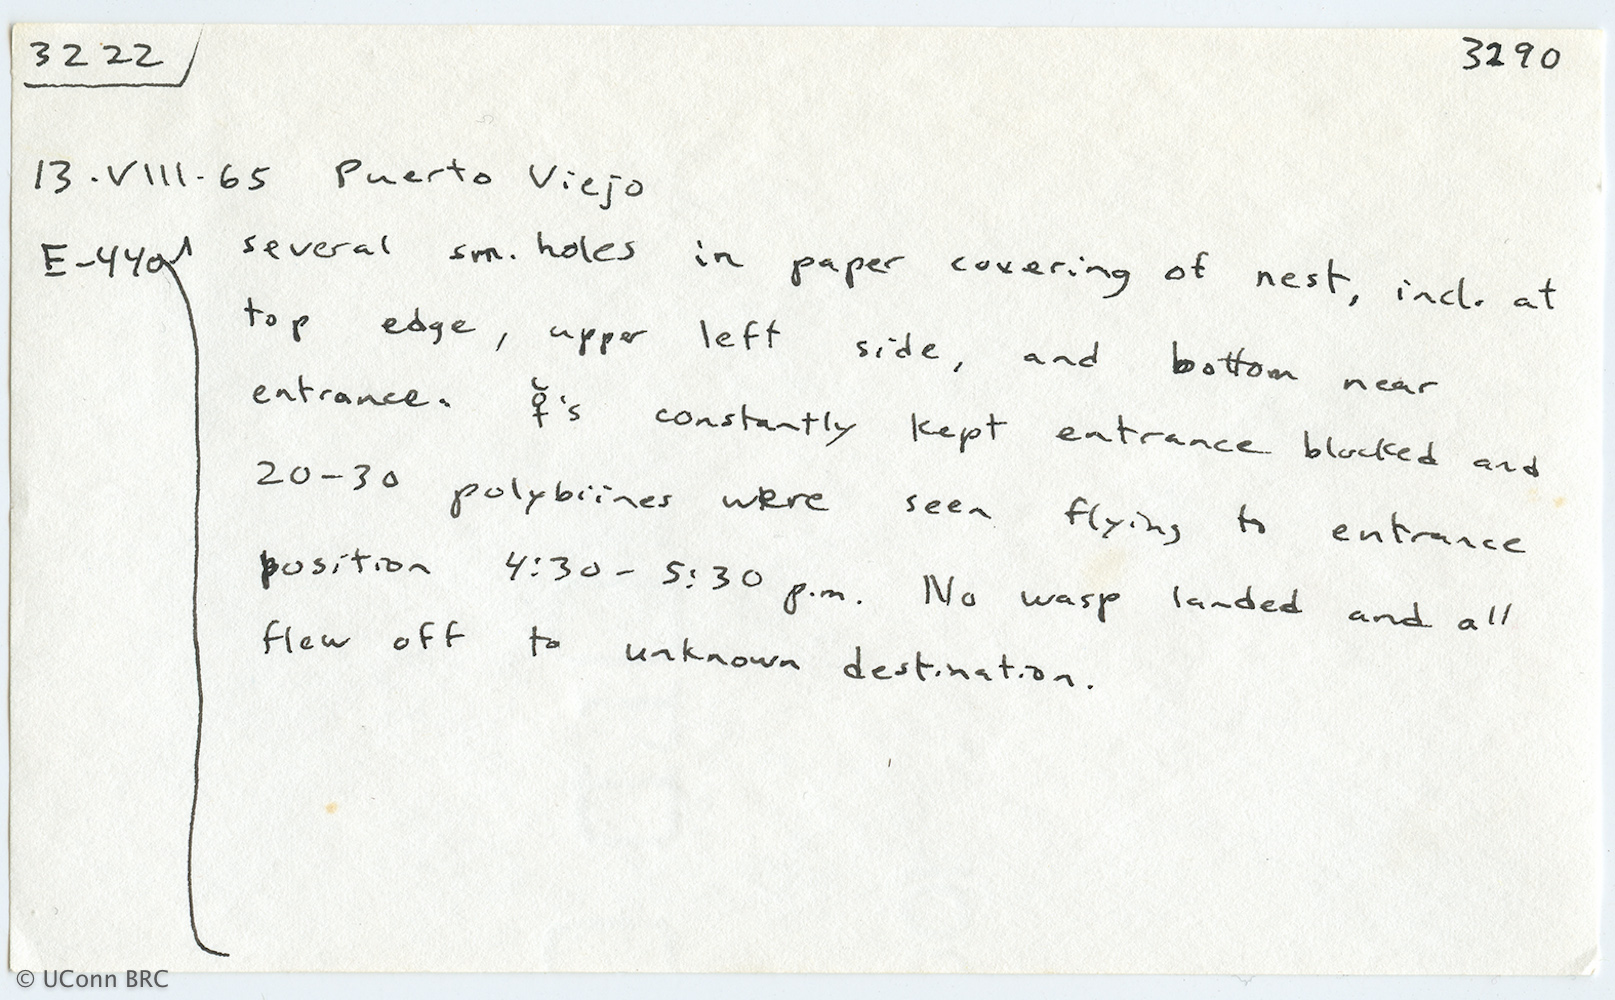 3222
3290
13.VIII.65 Puerto Viejo
E-440
several sm. holes in paper covering of nest, incl. at
top edge, upper left side, and bottom near
entrance. ☿'s constantly kept entrance blocked and
20-30 polybiines were seen flying to entrance
position 4:30-5:30 p.m. No wasp landed and all
flew off to unknown destination.
© UConn BRC